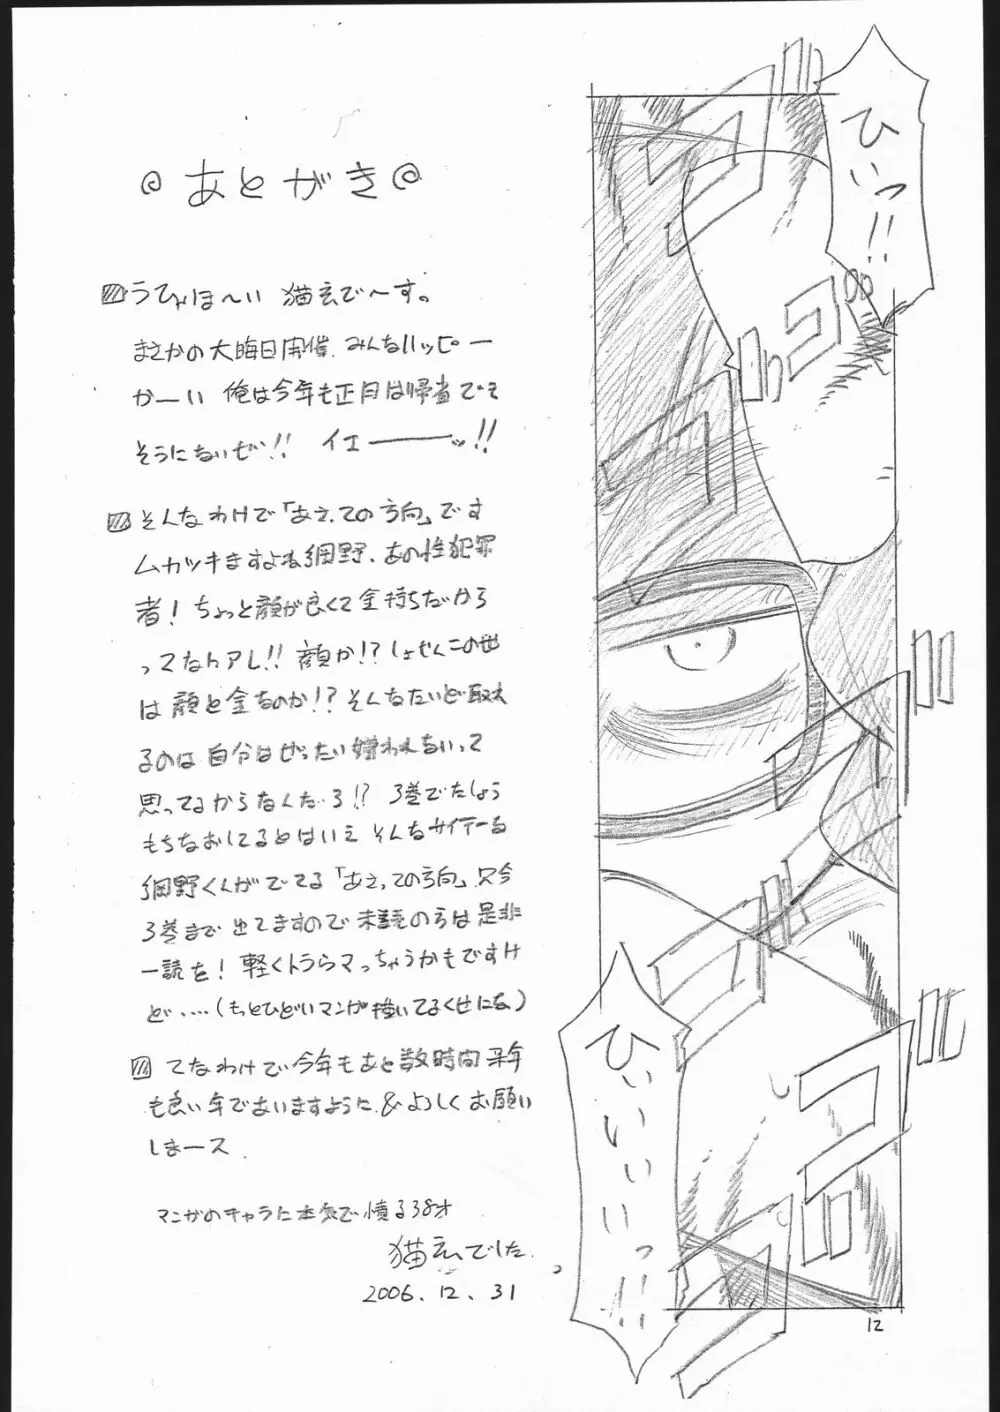 あとがき
うひゃほ〜い 猫玄で〜す。
まさかの大晦日開催、みんなハッピー
かーい 俺は今年も正月は帰省でき
そうにないぜ!! イエーーッ!!
そんなわけで「あえての方向」です
ムカツキますよね網野、あの性犯罪
者! ちょっと顔が良くて金持ちだから
ってなんアレ!! 顔か!? しょせんこの世
は顔と金なのか!? そんなたいど取れ
るのは自分はぜったい嫌われないって
思ってるからなんだろ!? 3巻でたしょう
もちなおしてるとはいえ そんなサイテーな
網野くんがでてる「あえての方向」只今
3巻まで出てますので未読の方は是非
一読を! 軽くトラウマっちゃうかもですけ
ど・・・・(もっとひどいマンガ描いてるくせにな)
てなわけで今年もあと数時間 来年
も良い年でありますように & よろしくお願い
しまース
マンガのキャラに本気で憤る38才
猫玄でした.
2006.12.31
ひいっ!!
ひいいいっ!!
12